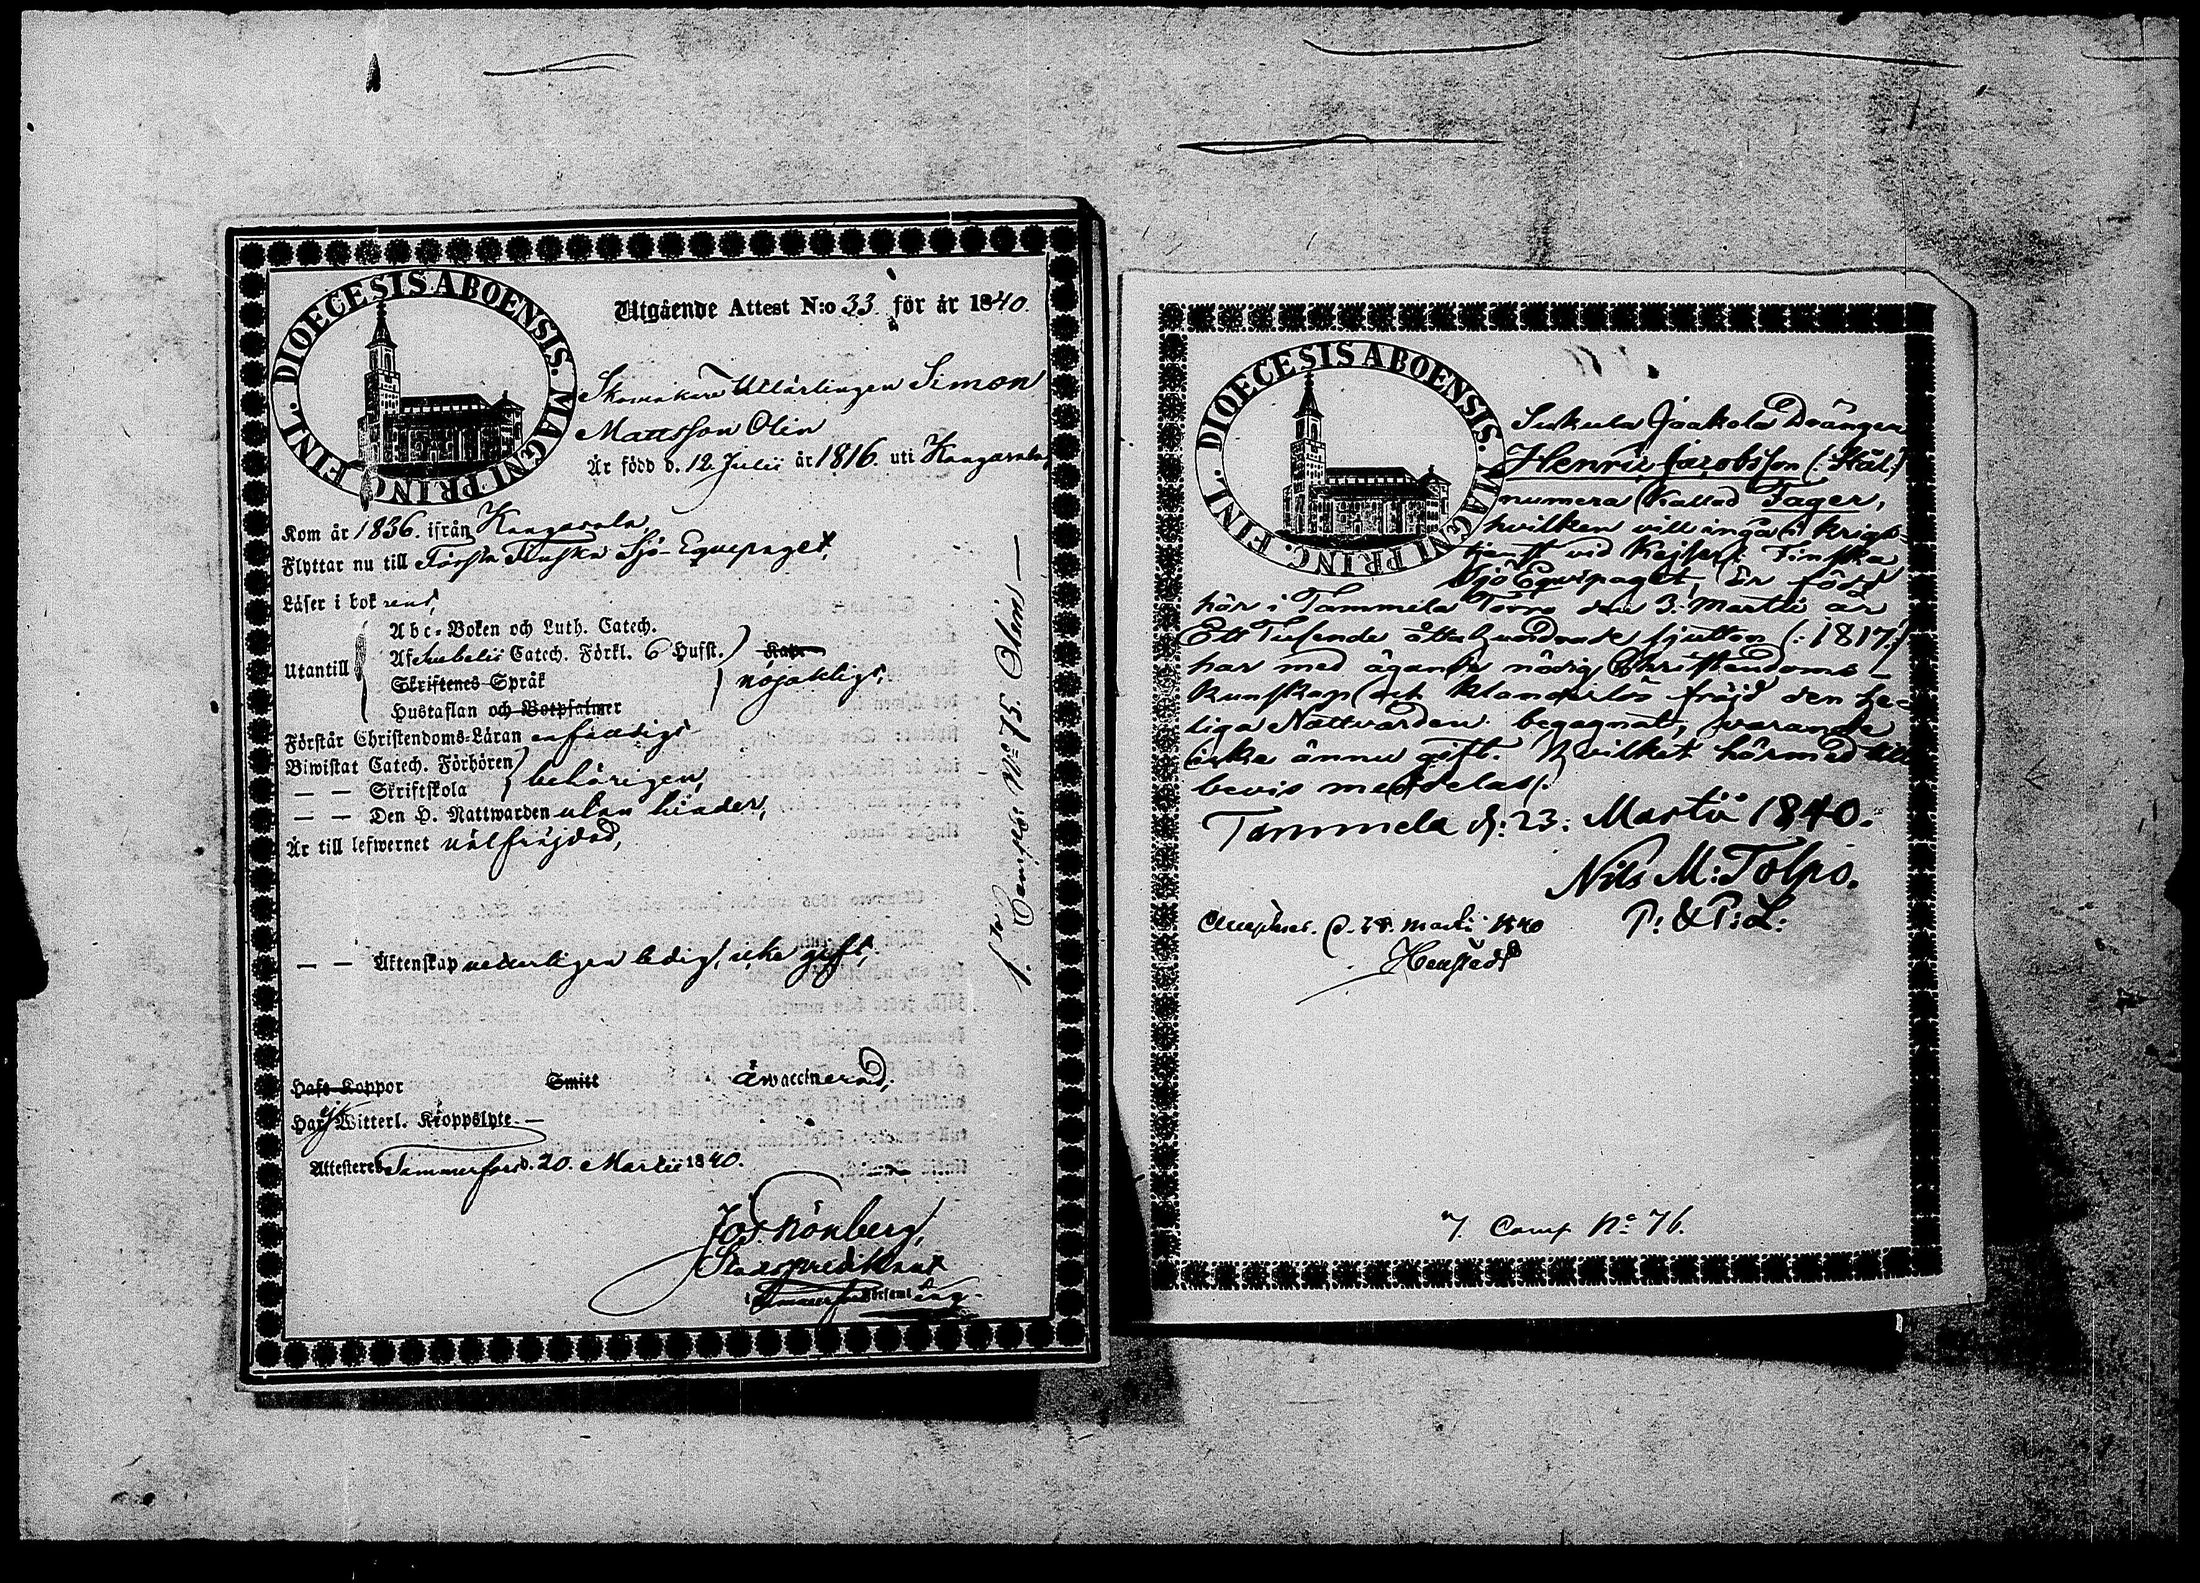 DIOECESIS ABOENSIS. MAGNI PRINC. FINL.
Utgående Attest N:o 33 för år 1840.
Skomakare Utlärlingen Simon
Mattsson Olin
Är född d. 12 Julii år 1816. uti Kangasala,
Kom år 1836. ifrån Kangasala
Flyttar nu till Första Finska Sjö-Equipaget,
Läser i bok rent,
Abc-Boken och Luth. Catech.
Utantill
Catech. Förkl. 6 Hufst.
Skriftenes Språk
nöjakligt,
Hustaflan och Botpsalmer
Förstår Christendoms-Läran enfaldigt
Biwistat Catech. Förhören
— — Skriftskola
behörigen,
— — Den H. Nattwarden utan hinder,
Är till lefwernet välfräjdad,
— — Äktenskap ledig, icke gift,
Haft Koppor Smitt är vaccinerad,
Har ej Witterl. Kroppslyte —
Attesteres Tammerfors d. 20. Martii 1840.
Jos. Grönberg,
Stadspredikant
1sta Compts No 75. Olin —
DIOECESIS ABOENSIS. MAGNI PRINC. FINL.
Sukula Jaakola Drängen
Henric Jacobsson (: Käl:)
numera kallad Fager,
hvilken vill ingå i krigs-
tjenst vid Kejserl. Finska
Sjö Equipaget, är född
här i Tammela Torro den 3. Martii år
Ett Tusende åttahundrade sjutton (: 1817.:)
har med ägande nödig Christendoms-
kunskap och klanderlös fräjd den he-
liga Nattvarden begagnat, varande
icke ännu gift. Hvilket härmed till
bevis meddelas.
Tammela d: 23: Martii 1840.
Nils M: Tolpo.
P: & P: L:
d. 28. Martii 1840
7. Comp No 76.